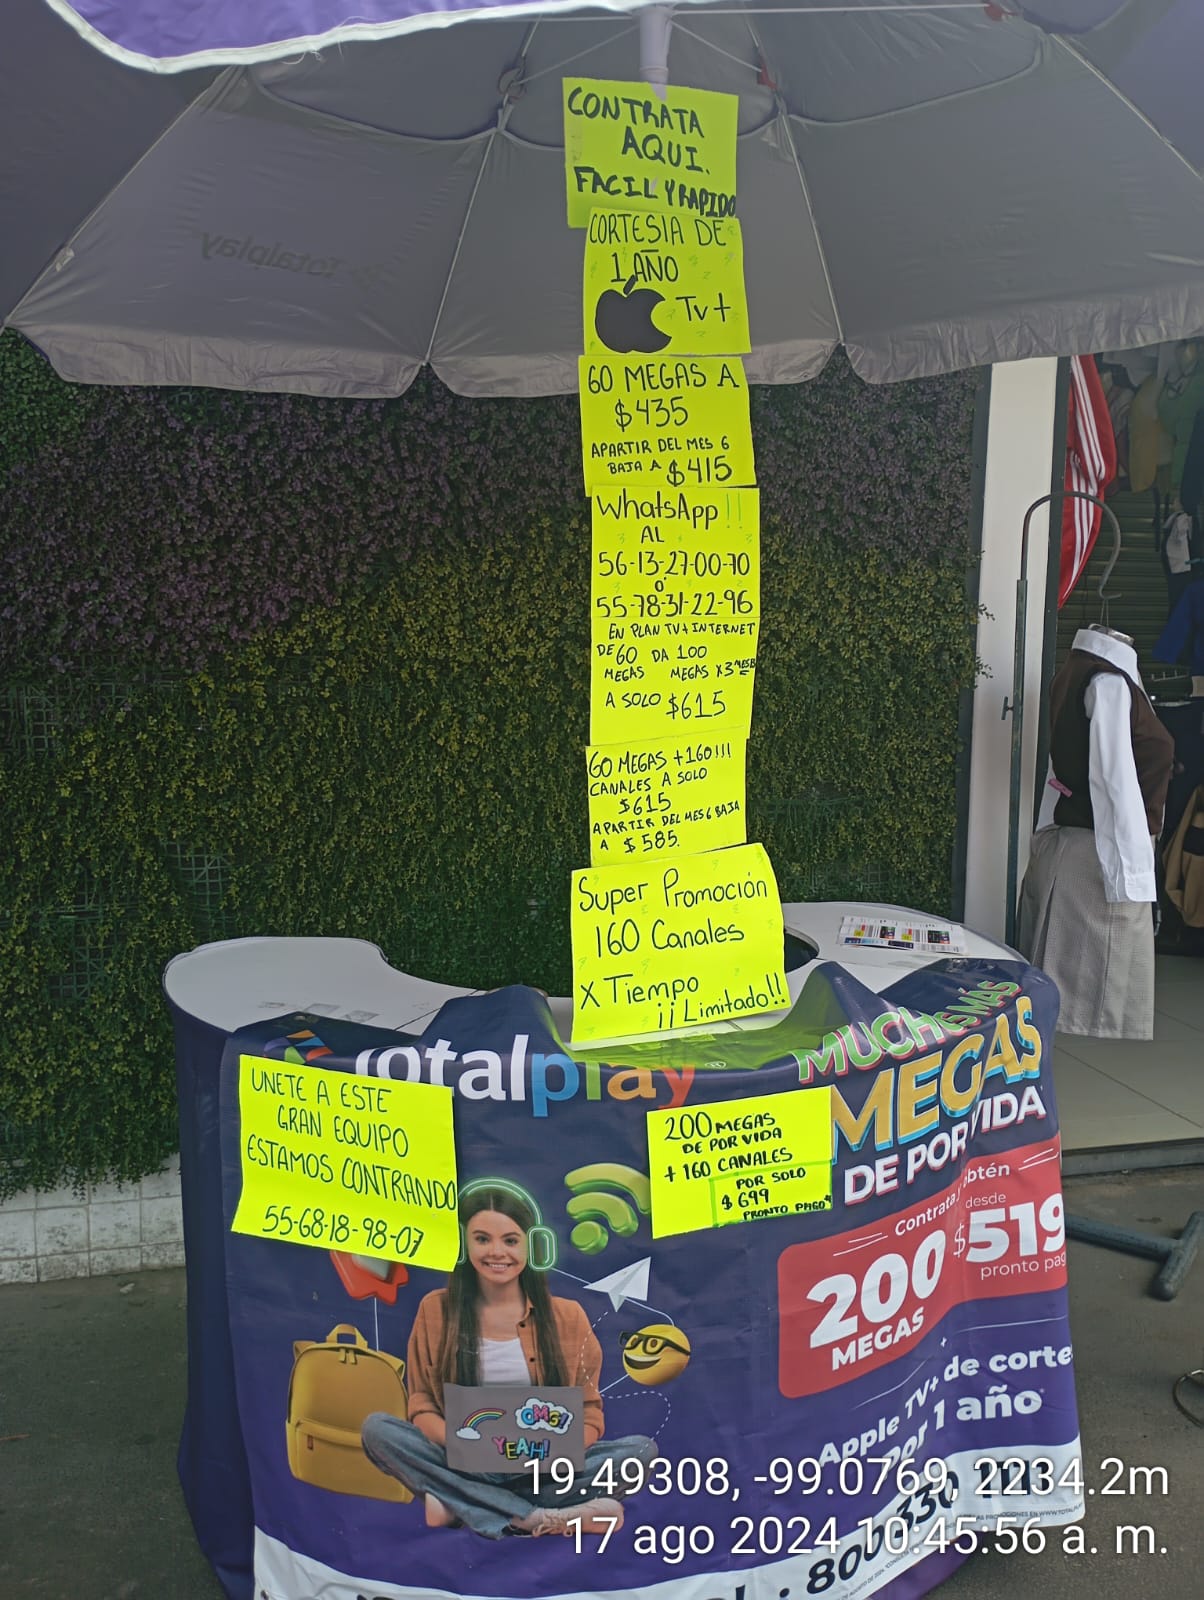 CONTRATA
AQUI.
FACIL Y RAPIDO
CORTESIA DE
1 AÑO
Tv+
60 MEGAS A
$435
APARTIR DEL MES 6
BAJA A $415
WhatsApp!!
AL
56-13-27-00-70
o'
55-78-31-22-96
EN PLAN TV+INTERNET
DE 60 DA 100
MEGAS MEGAS X3 MESES
A SOLO $615
60 MEGAS +160!!!
CANALES A SOLO
$615
APARTIR DEL MES 6 BAJA
A $585.
Super Promoción
160 Canales
X Tiempo
¡¡Limitado!!
totalplay
UNETE A ESTE
GRAN EQUIPO
ESTAMOS CONTRANDO
55-68-18-98-07
200 MEGAS
DE POR VIDA
+ 160 CANALES
POR SOLO
$699
PRONTO PAGO*
MUCHOMÁS
MEGAS
DE POR VIDA
desde
200
MEGAS
$519
pronto pag
Apple TV+ de corte
por 1 año
OMG!
YEAH!
Totalplay
19.49308, -99.0769, 2234.2m
17 ago 2024 10:45:56 a. m.